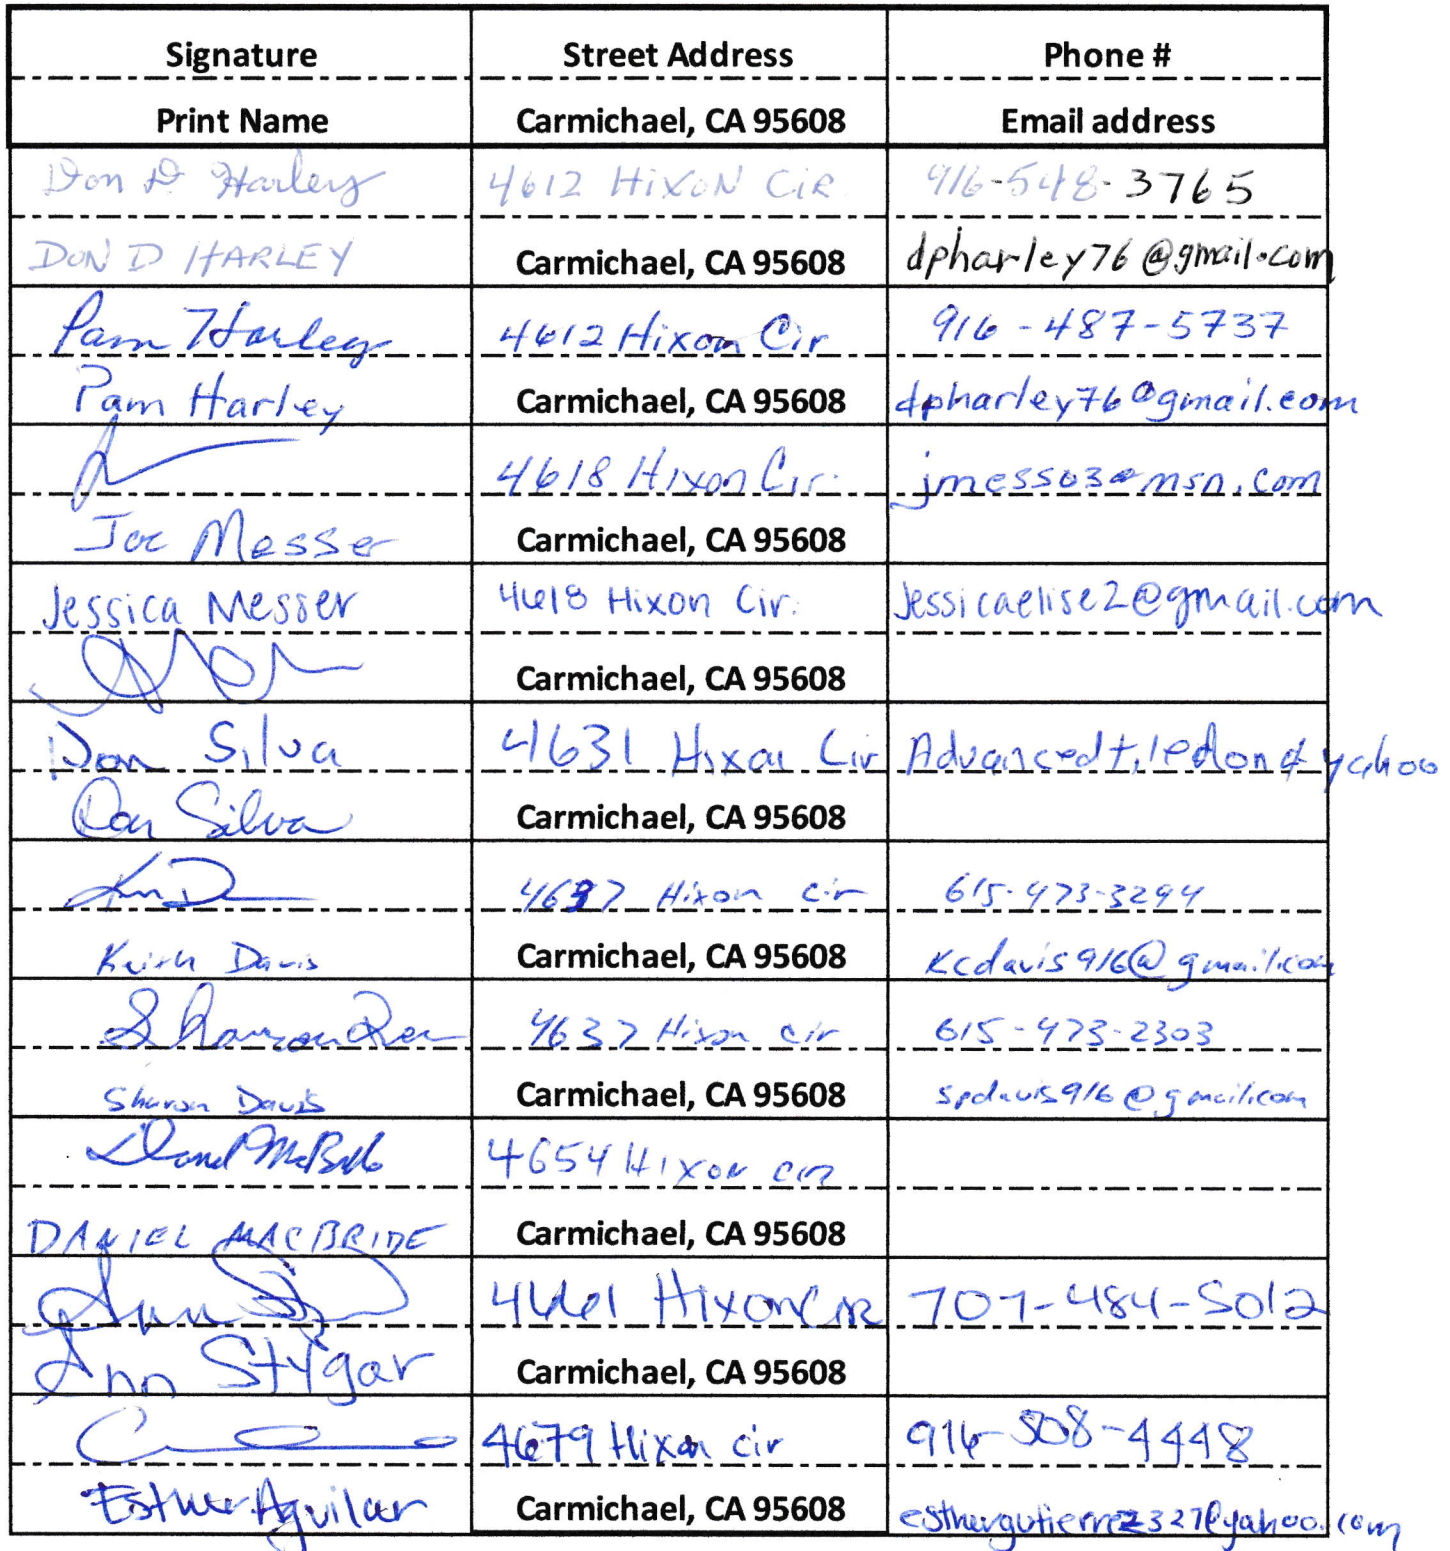 Signature Street Address Phone #
Print Name Carmichael, CA 95608 Email address
Don D Harley 4612 HiXON CiR 916-548-3765
DON D HARLEY Carmichael, CA 95608 dpharley76@gmail.com
Pam Harley 4612 Hixon Cir 916-487-5737
Pam Harley Carmichael, CA 95608 dpharley76@gmail.com
4618 Hixon Cir. jmess03@msn.com
Joe Messer Carmichael, CA 95608
Jessica Messer 4618 Hixon Cir. Jessicaelise2@gmail.com
Carmichael, CA 95608
Don Silva 4631 Hixon Cir Advancedtiledon@yahoo
Don Silva Carmichael, CA 95608
4637 Hixon cir 615-473-3294
Keith Davis Carmichael, CA 95608 kcdavis916@gmail.com
4637 Hixon cir 615-473-2303
Sharon Davis Carmichael, CA 95608 spdavis916@gmail.com
4654 HIXON CIR
DANIEL MACBRIDE Carmichael, CA 95608
4661 Hixon CIR 707-484-5012
Ann Stygar Carmichael, CA 95608
4679 Hixon cir 916-508-4448
Esther Aguilar Carmichael, CA 95608 esthergutierrez327@yahoo.com